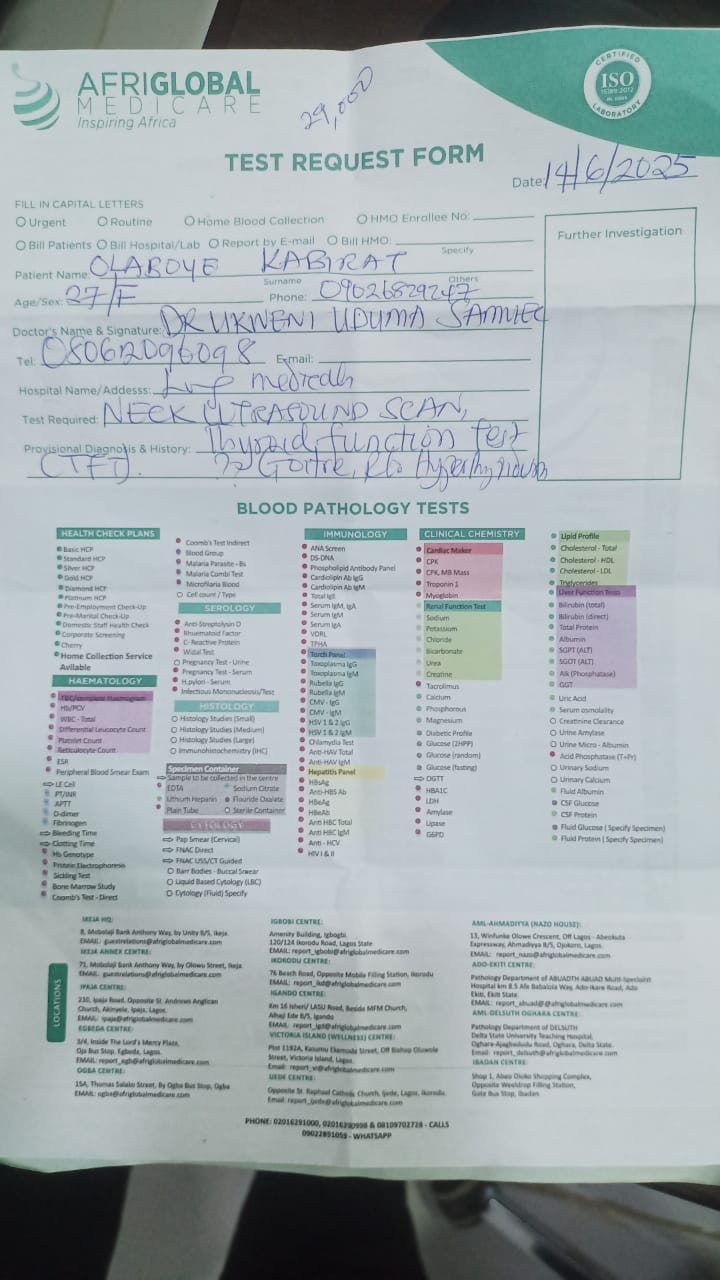 AFRIGLOBAL
MEDICARE
Inspiring Africa
29,000
CERTIFIED
ISO
15189:2012
LABORATORY
TEST REQUEST FORM
Date: 14/6/2025
FILL IN CAPITAL LETTERS
Urgent Routine Home Blood Collection HMO Enrollee No:
Bill Patients Bill Hospital/Lab Report by E-mail Bill HMO:
Specify
Further Investigation
Patient Name: OLABOYE KABIRAT
Surname Others
Age/Sex: 27/F Phone: 09026829247
Doctor's Name & Signature: DR UKWENI UDUMA SAMUEL
Tel: 080612096098 E-mail:
Hospital Name/Addesss: medicals
Test Required: NECK ULTRASOUND SCAN,
Provisional Diagnosis & History: Thyroid function Test
(TFT). ?? Goitre, R/o Hyperthyroidism
BLOOD PATHOLOGY TESTS
HEALTH CHECK PLANS
Basic HCP
Standard HCP
Silver HCP
Gold HCP
Diamond HCP
Platinum HCP
Pre-Employment Check-Up
Pre-Marital Check-Up
Domestic Staff Health Check
Corporate Screening
Cherry
Home Collection Service
Avilable
HAEMATOLOGY
Hb/PCV
WBC - Total
Differential Leucocyte Count
Platelet Count
Reticulocyte Count
ESR
Peripheral Blood Smear Exam
LE Cell
PT/INR
APTT
D-dimer
Fibrinogen
Bleeding Time
Clotting Time
Hb Genotype
Protein Electrophoresis
Sickling Test
Bone Marrow Study
Coomb's Test - Direct
Coomb's Test Indirect
Blood Group
Malaria Parasite - Bs
Malaria Combi Test
Microfilaria Blood
Cell count / Type
SEROLOGY
Anti-Streptolysin O
Rheumatoid Factor
C- Reactive Protein
Widal Test
Pregnancy Test - Urine
Pregnancy Test - Serum
H.pylori - Serum
Infectious Mononucleosis/Test
HISTOLOGY
Histology Studies (Small)
Histology Studies (Medium)
Histology Studies (Large)
Immunohistochemistry (IHC)
Specimen Container
Sample to be collected in the centre
EDTA Sodium Citrate
Lithium Heparin Flouride Oxalate
Plain Tube Sterile Container
CYTOLOGY
Pap Smear (Cervical)
FNAC Direct
FNAC USS/CT Guided
Barr Bodies - Buccal Smear
Liquid Based Cytology (LBC)
Cytology (Fluid) Specify
IMMUNOLOGY
ANA Screen
DS-DNA
Phospholipid Antibody Panel
Cardiolipin Ab IgG
Cardiolipin Ab IgM
Total IgE
Serum IgM, IgA
Serum IgM
Serum IgA
VDRL
TPHA
Torch Panel
Toxoplasma IgG
Toxoplasma IgM
Rubella IgG
Rubella IgM
CMV - IgG
CMV - IgM
HSV 1 & 2 IgG
HSV 1 & 2 IgM
Chlamydia Test
Anti-HAV Total
Anti-HAV IgM
Hepatitis Panel
HBsAg
Anti-HBS Ab
HBeAg
HBeAb
Anti HBC Total
Anti HBC IgM
Anti - HCV
HIV I & II
CLINICAL CHEMISTRY
Cardiac Maker
CPK
CPK, MB Mass
Troponin 1
Myoglobin
Renal Function Test
Sodium
Potassium
Chloride
Bicarbonate
Urea
Creatine
Tacrolimus
Calcium
Phosphorous
Magnesium
Diabetic Profile
Glucose (2HPP)
Glucose (random)
Glucose (fasting)
OGTT
HBA1C
LDH
Amylase
Lipase
G6PD
Lipid Profile
Cholesterol - Total
Cholesterol - HDL
Cholesterol - LDL
Triglycerides
Liver Function Tests
Bilirubin (total)
Bilirubin (direct)
Total Protein
Albumin
SGPT (ALT)
SGOT (ALT)
Alk (Phosphatase)
GGT
Uric Acid
Serum osmolality
Creatinine Clearance
Urine Amylase
Urine Micro - Albumin
Acid Phosphatase (T+Pr)
Urinary Sodium
Urinary Calcium
Fluid Albumin
CSF Glucose
CSF Protein
Fluid Glucose ( Specify Specimen)
Fluid Protein ( Specify Specimen)
LOCATIONS
IKEJA HQ:
8, Mobolaji Bank Anthony Way, by Unity B/S, Ikeja.
EMAIL: guestrelations@afriglobalmedicare.com
IKEJA ANNEX CENTRE:
71, Mobolaji Bank Anthony Way, by Olowu Street, Ikeja.
EMAIL: guestrelations@afriglobalmedicare.com
IPAJA CENTRE:
210, Ipaja Road, Opposite St. Andrews Anglican
Church, Akinyele, Ipaja, Lagos.
EMAIL: ipaja@afriglobalmedicare.com
EGBEDA CENTRE:
3/4, Inside The Lord's Mercy Plaza,
Oja Bus Stop, Egbeda, Lagos.
EMAIL: report_egb@afriglobalmedicare.com
OGBA CENTRE:
15A, Thomas Salako Street, By Ogba Bus Stop, Ogba
EMAIL: ogba@afriglobalmedicare.com
IGBOBI CENTRE:
Amenity Building, Igbogbi.
120/124 Ikorodu Road, Lagos State
EMAIL: report_igbobi@afriglobalmedicare.com
IKORODU CENTRE:
76 Beach Road, Opposite Mobile Filling Station, Ikorodu
EMAIL: report_ikd@afriglobalmedicare.com
IGANDO CENTRE:
Km 16 Isheri/ LASU Road, Beside MFM Church,
Alhaji Ede B/S, Igando
EMAIL: report_igd@afriglobalmedicare.com
VICTORIA ISLAND (WELLNESS) CENTRE:
Plot 1192A, Kasumu Ekemode Street, Off Bishop Oluwole
Street, Victoria Island, Lagos.
Email: report_vi@afriglobalmedicare.com
IJEDE CENTRE:
Opposite St. Raphael Catholic Church, Ijede, Lagos, Ikorodu.
Email: report_ijede@afriglobalmedicare.com
AML-AHMADIYYA (NAZO HOUSE):
13, Winfunke Olowe Crescent, Off Lagos - Abeokuta
Expressway, Ahmadiyya B/S, Ojokoro, Lagos.
EMAIL: report_nazo@afriglobalmedicare.com
ADO-EKITI CENTRE:
Pathology Department of ABUADTH ABUAD Multi-Specialist
Hospital km 8.5 Afe Babalola Way, Ado-Ikare Road, Ado
Ekiti, Ekiti State.
EMAIL: report_abuad@afriglobalmedicare.com
AML-DELSUTH OGHARA CENTRE:
Pathology Department of DELSUTH
Delta State University Teaching Hospital,
Oghara-Ajagbodudu Road, Oghara, Delta State.
Email: report_delsuth@afriglobalmedicare.com
IBADAN CENTRE:
Shop 1, Abeo Oloko Shopping Complex,
Opposite Weeldrop Filling Station,
Gate Bus Stop, Ibadan.
PHONE: 02016291000, 02016290998 & 08109702728 - CALLS
09022891059 - WHATSAPP